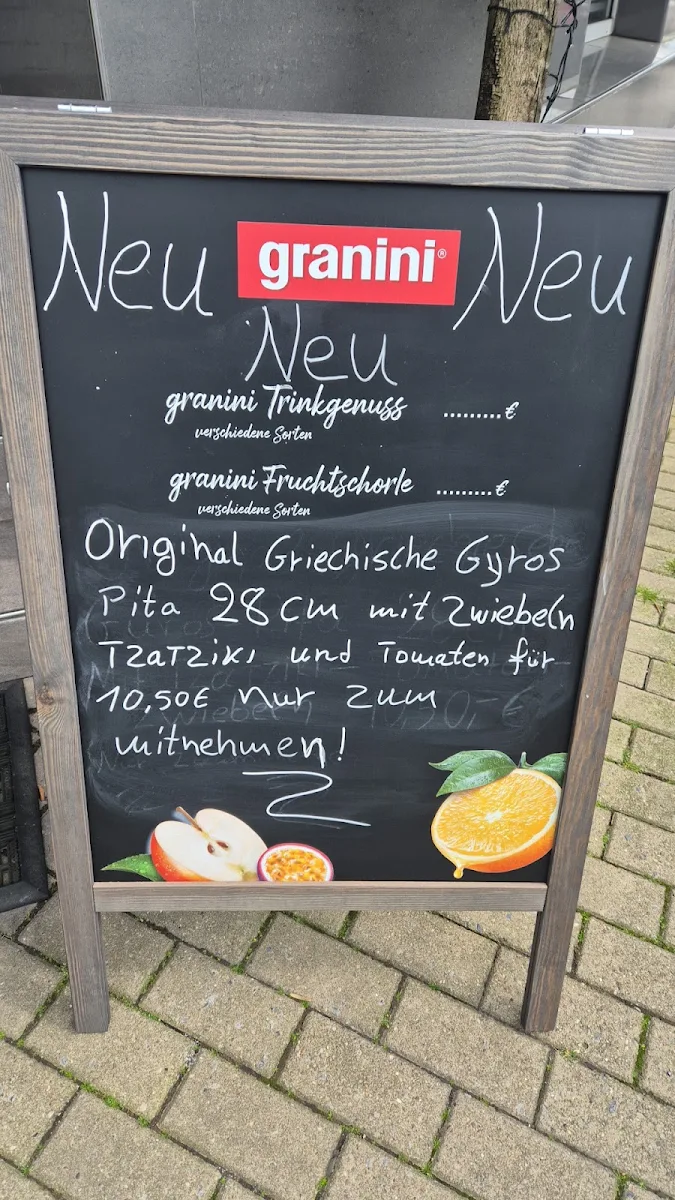 Neu granini® Neu
Neu
granini Trinkgenuss .........€
verschiedene Sorten
granini Fruchtschorle .........€
verschiedene Sorten
Original Griechische Gyros
Pita 28 cm mit Zwiebeln
TZaTZiki und Tomaten für
10,50€ nur zum
mitnehmen!